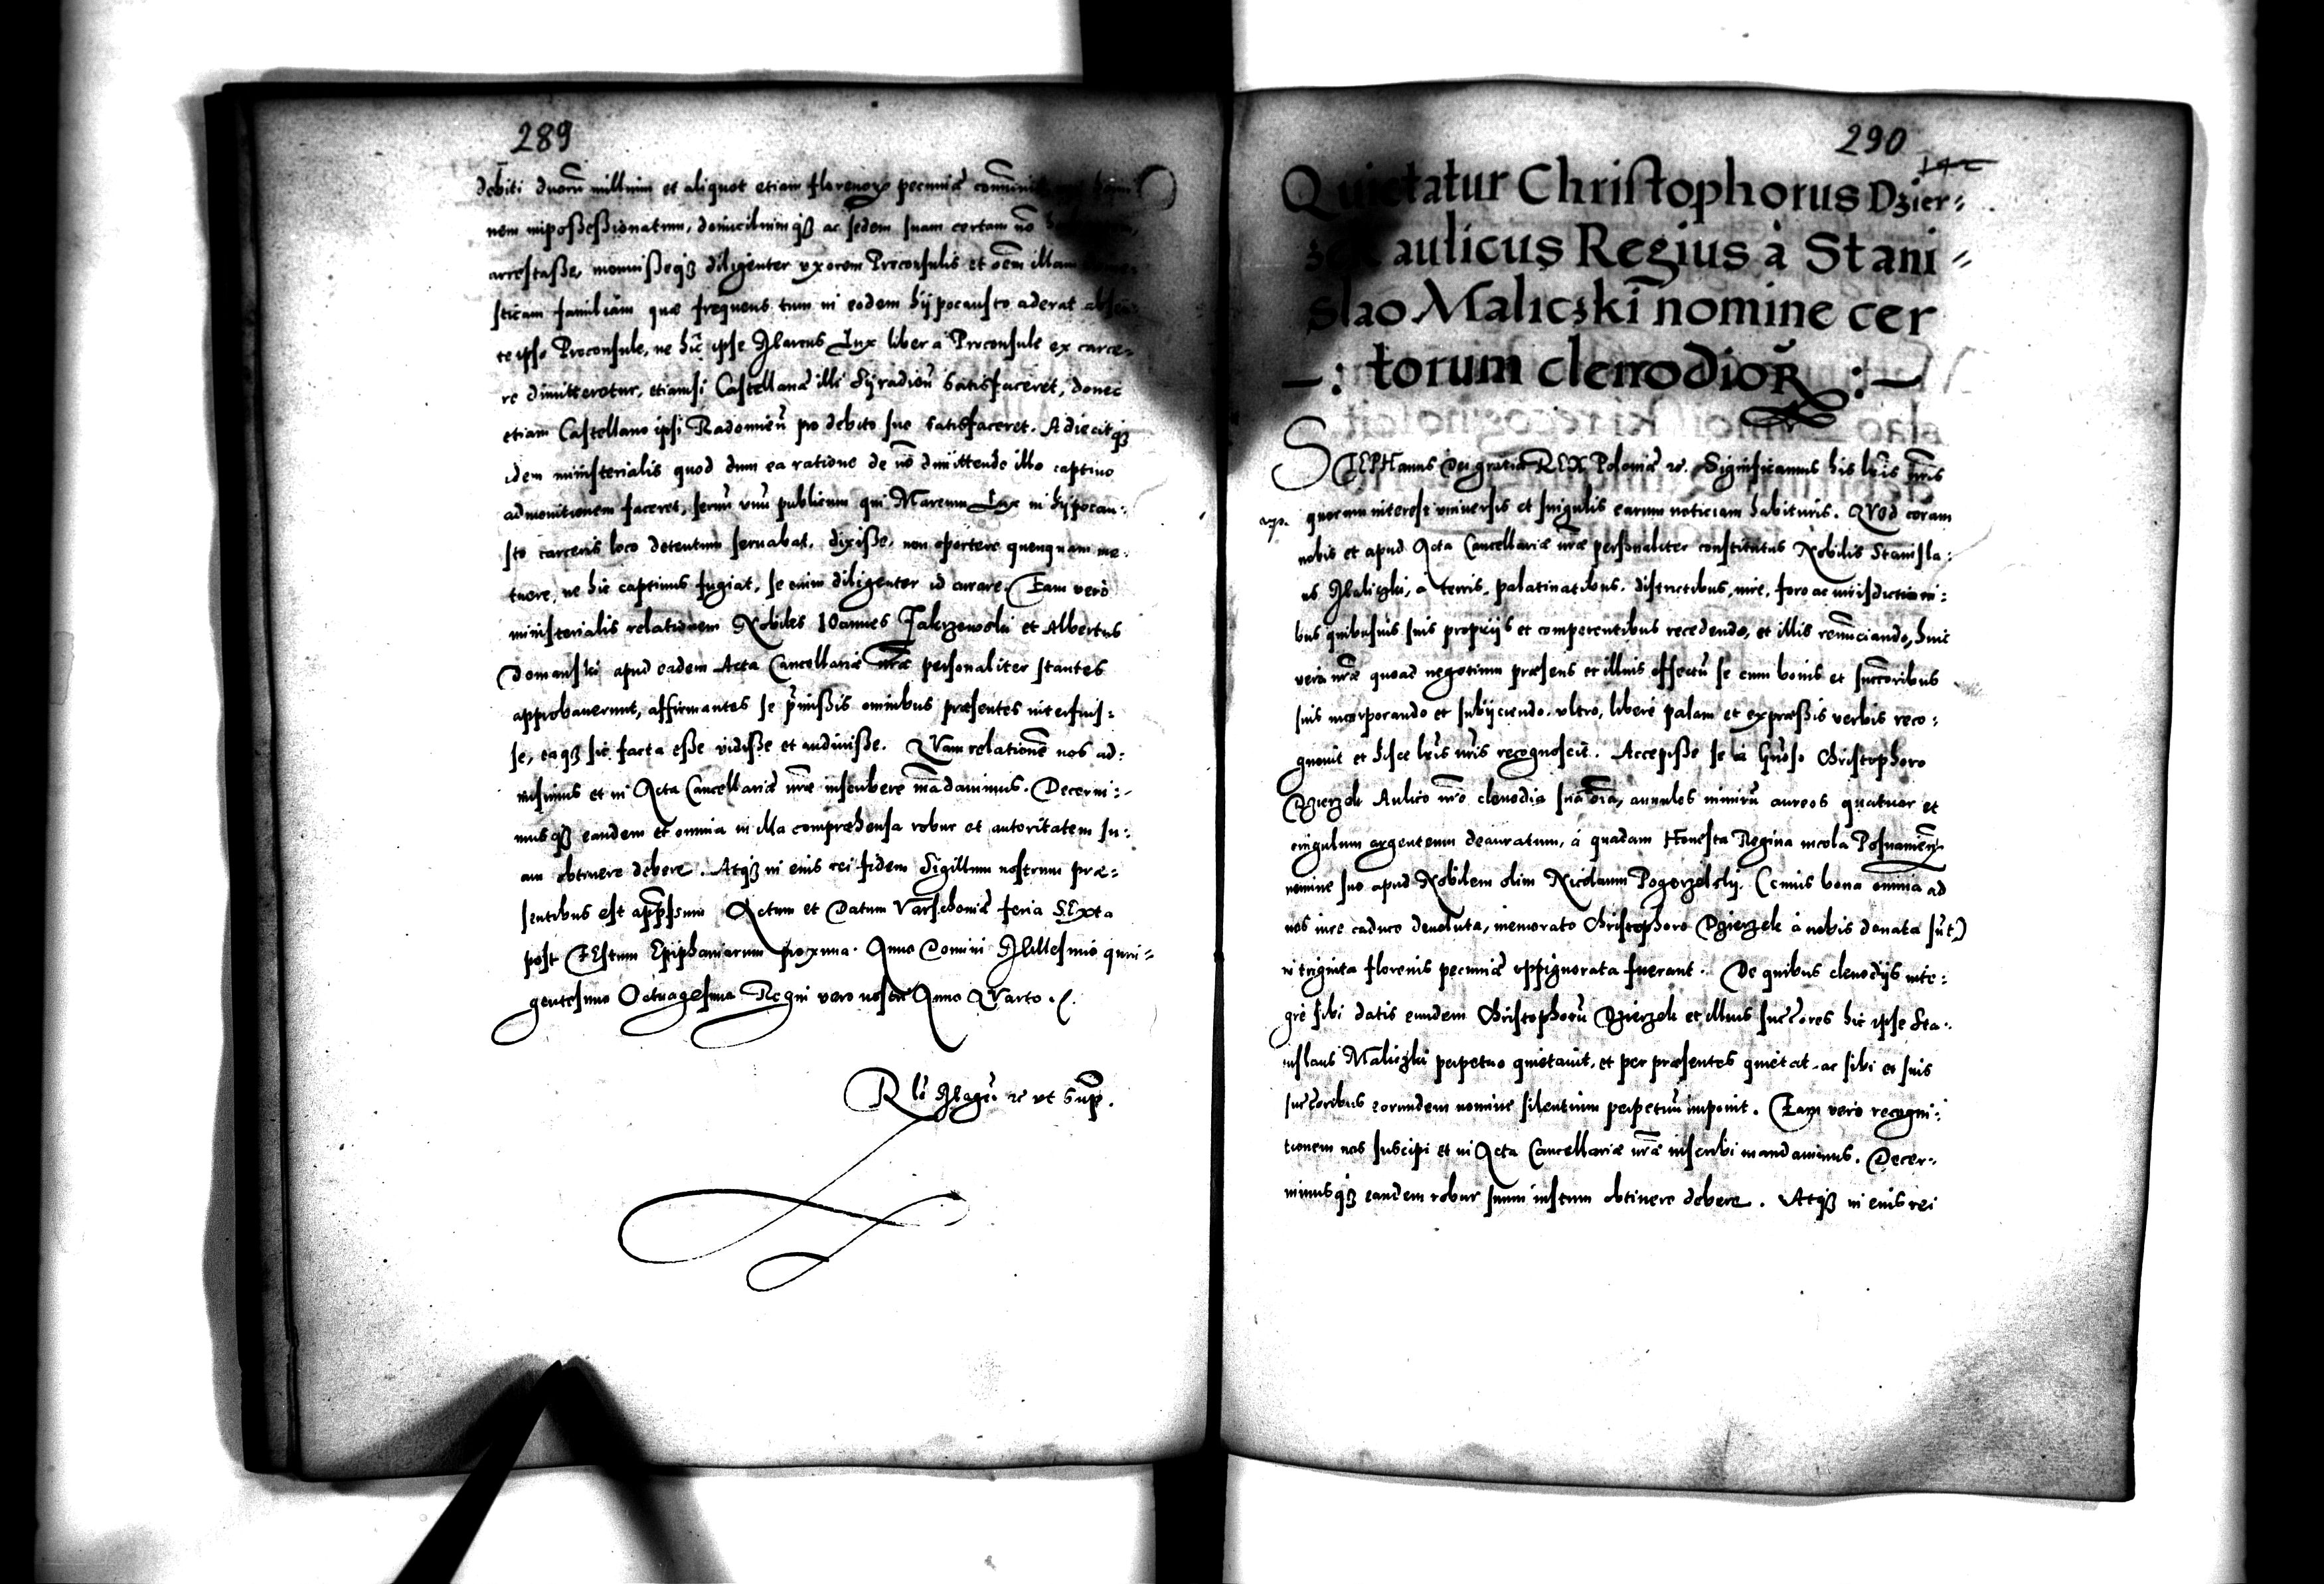 289
debiti duorū millium et aliquot etiam florenorū pecuniæ
nem impoßeßionatum, domiciliumqȝ ac sedem suam certam nō
arrestaße, monuißeqȝ diligenter vxorem Proconsulis et oēm illam
sticam familiam quæ frequens tum in eodem hypocausto aderat absen-
te ipso Proconsule, ne hic ipse Marcus Lux liber a Proconsule ex carce-
re dimitteretur, etiamsi Castellanæ illi Syradień satisfaceret, donec
etiam Castellano ipsi Radomień pro debito suo satisfaceret. Adiecitqȝ
idem ministerialis quod dum ea ratione de nō dimittendo illo captiuo
admonitionem faceret, seruū vnū publicum qui Marcum Lux in hypocau-
sto carceris loco detentum seruabat, dixiße, non oportere quenquam me-
tuere, ne hic captiuus fugiat, se enim diligenter id curare. Eam vero
ministerialis relationem Nobiles IOannes Jakrzewski et Albertus
Domanski apud eadem Acta Cancellariæ nr̄æ personaliter stantes
approbauerunt, affirmantes se p̄mißis omnibus præsentes interfuis-
se, eaqȝ sic facta eße vidiße et audiuiße. QVam relationē nos ad-
misimus et in Acta Cancellariæ nr̄æ inscribere mādauimus. Decerni-
musqȝ eandem et omnia in illa comprehensa robur et autoritatem su-
am obtinere debere. Atqȝ in eius rei fidem Sigillum nostrum præ-
sentibus est app̄ssum Actum et Datum Varschouiæ feria SExta
post FEstum Epiphaniarum proxima. Anno Domini Millesimo quin-
gentesimo Octuagesimo Regni vero nostri Anno QVarto.
Rlō Magci ꝛc vt sup̄.
290
Quietatur Christophorus Dzier-
zek aulicus Regius à Stani-
slao Maliczki nomine cer
-: torum clenodiorꝝ :-
STEPHanus Dei gratia REX Poloniæ ꝛc. Significamus his lr̄is nr̄is
quorum interest vniuersis et singulis earum noticiam habituris. QVod coram
nobis et apud Acta Cancellariæ nr̄æ personaliter constitutus Nobilis Stanisla-
us Maliczki, a terris, palatinatibus, districtibus, iure, foro ac iurisdictioni-
bus quibusuis suis proprijs et competentibus recedendo, et illis renūciando, huic
vero nr̄æ quoad negotium præsens et illius effectū se cum bonis et succōribus
suis incorporando et subijciendo. vltro, libere palam et expræßis verbis reco-
gnouit et hisce lr̄is nr̄is recognoscit. Accepiße se à Gn̄oso Christophoro
Dzierzek Aulico nr̄o clenodia sua oīa, annulos nimirū aureos quatuor et
cingulum argenteum deauratum, à quadam HOnesta Regina incola Posnanień
nomine suo apud Nobilem olim Nicolaum Pogorzelskij (cuius bona omnia ad
nos iure caduco deuoluta, memorato Christophoro Dzierzek à nobis donata sūt)
in triginta florenis pecuniæ oppignorata fuerant. De quibus clenodijs inte-
gre sibi datis eundem Christophorū Dzierzek et illius succōres hic ipse Sta-
nislaus Maliczki perpetuo quietauit, et per præsentes quietat. ac sibi et suis
succōribus eorundem nomine silentium perpetuū imponit. Eam vero recogni-
tionem nos suscipi et in Acta Cancellariæ nr̄æ inscribi mandauimus. Decer-
nimusqȝ eandem robur suum iustum obtinere debere. Atqȝ in eius rei